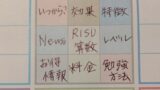 いつから? 効果 特徴
News RISU算数 レベル
お得情報 料金 勉強方法